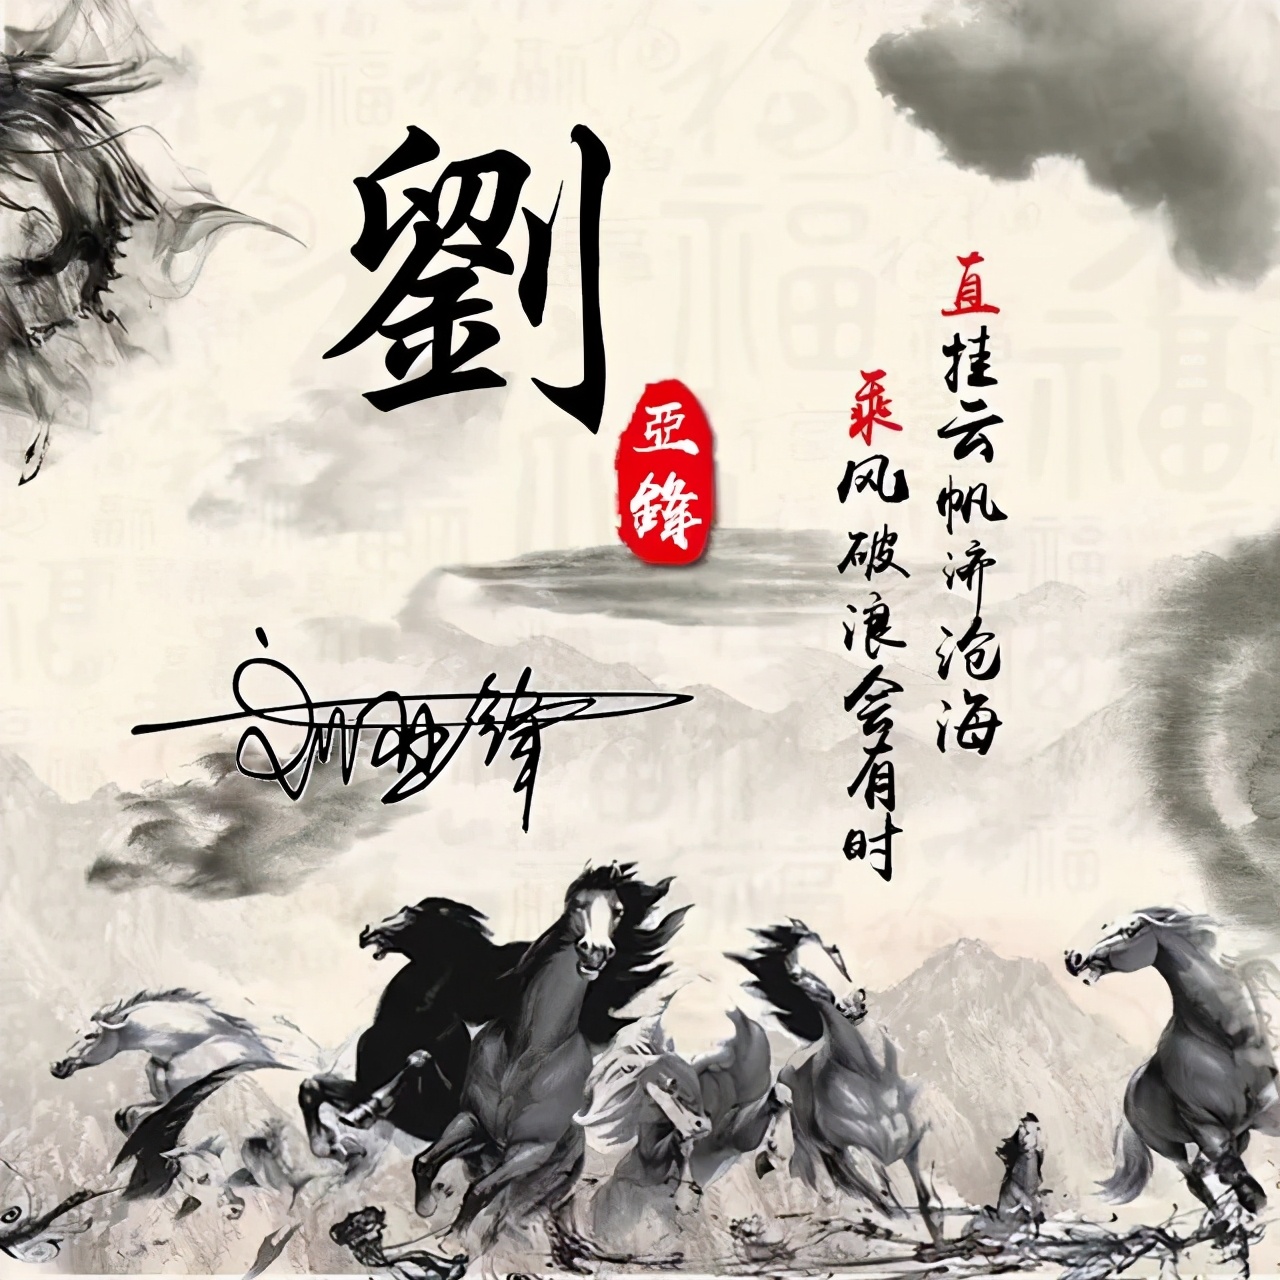 劉
亞鋒
刘亚锋
乘风破浪会有时
直挂云帆济沧海